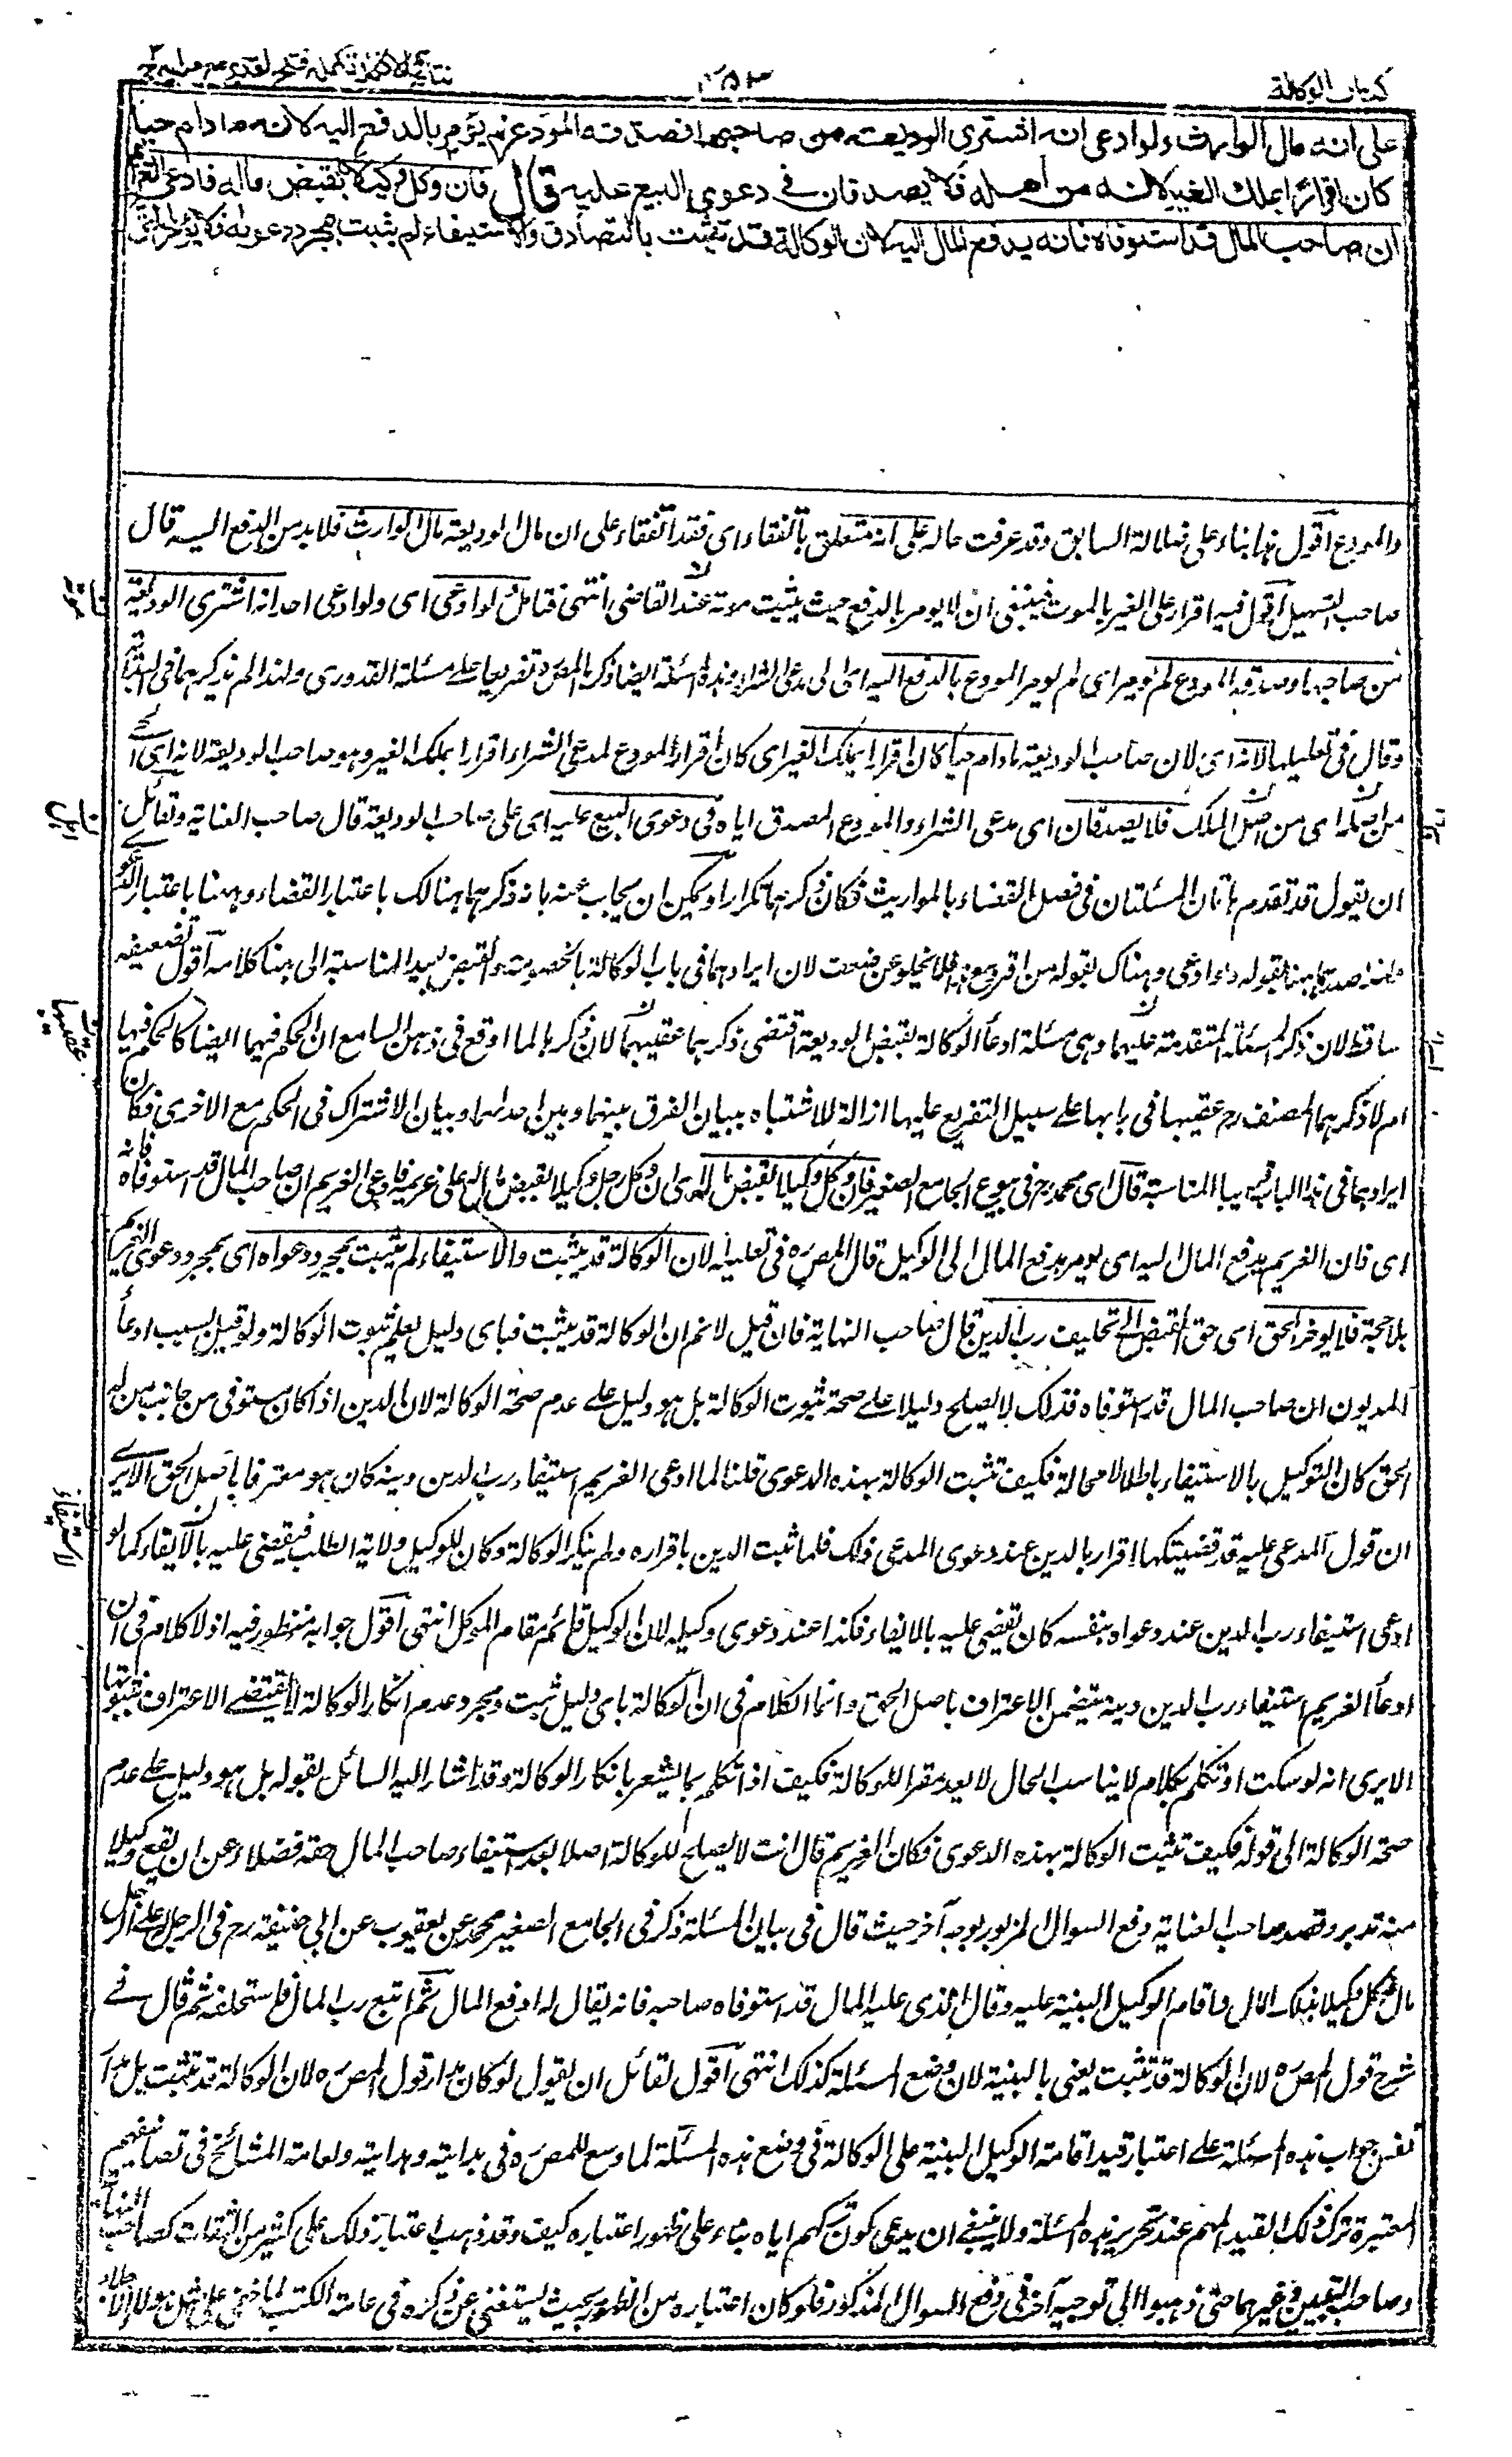 كتاب الوكالة
نتائج الافكار تكملة فتح القدير مع هداية ج ٣
على انه مال الوارث ولو ادعى انه اشترى الوديعة من صاحبها فصدقه المودع لم يؤمر بالدفع اليه لانه ما دام حيا
كان اقرارا بملك الغير لانه من أهله فلا يصدقان في دعوى البيع عليه قال فان وكل وكيلا بقبض ماله فادعى الغريم
ان صاحب المال قد استوفاه فانه يدفع المال اليه لان الوكالة قد تثبت بالتصادق والاستيفاء لم يثبت بمجرد دعواه فلا يؤخر الحق
والمودع اقول هذا بناء على ضلالة السابق وقد عرفت حاله على انه متعلق باتفقاء اى فقد اتفقاء على ان مال الوديعة مال الوارث فلا بد من الدفع اليه قال
صاحب التسهيل اقول فيه اقرار على الغير بالموت فينبغى ان لا يومر بالدفع حيث يثبت موته عند القاضى انتهى فتامل ولو ادعى اى ولو ادعى احد انه اشترى الوديعة
من صاحبها وصدقه المودع لم يومر اى لم يومر المودع بالدفع اليه اى الى مدعى الشراء وهذه المسئلة ايضا ذكرها المصره تفريعا على مسئلة القدورى ولذا لم يذكرهما فى البداية
وقال فى تعليلها لانه اى لان صاحب الوديعة ما دام حيا كان اقرارا بملك الغير اى كان اقرار المودع لمدعى الشراء اقرارا بملك الغير وهو صاحب الوديعة لانه اى الحى
من اهله اى من اهل الملك فلا يصدقان اى مدعى الشراء والمودع المصدق اياه فى دعوى البيع عليه اى على صاحب الوديعة قال صاحب العناية ولقائل
ان يقول قد تقدم هاتان المسئلتان فى فصل القضاء بالمواريث فكان ذكرهما تكرارا ويمكن ان يجاب عنه بانه ذكرهما هنالك باعتبار القضاء وههنا باعتبار الدعوى
ولهذا صدرهما ههنا بقوله ولو ادعى وهناك بقوله من اقر وهو مع هذا لا يخلو عن ضعف لان ايرادهما فى باب الوكالة بالخصومة والقبض بعيد المناسبة الى هنا كلامه اقول تضعيفه
ساقط لان ذكر المسئلة المتقدمة عليهما وهى مسئلة ادعاء الوكالة بقبض الوديعة اقتضى ذكرهما عقيبها لان ذكرها لما اوقع فى ذهن السامع ان الحكم فيهما ايضا كالحكم فيها
ام لا ذكرهما المصنف رح عقيبها فى بابها على سبيل التفريع عليها ازالة للاشتباه ببيان الفرق بينها وبين احدهما وبيان الاشتراك فى الحكم مع الاخرى فكان
ايرادهما فى هذا الباب قريب المناسبة قال اى محمد رح فى بيوع الجامع الصغير فان وكل وكيلا بقبض ماله اى ان وكل رجل وكيلا بقبض ماله على غريمه فادعى الغريم ان صاحب المال قد استوفاه فانه
اى فان الغريم يدفع المال اليه اى يومر بدفع المال الى الوكيل قال المصره فى تعليله لان الوكالة قد يثبت والاستيفاء لم يثبت بمجرد دعواه اى بمجرد دعوى الغريم
بلا حجة فلا يوخر الحق اى حق القبض الى تحليف رب الدين قال صاحب النهاية فان قيل لا نم ان الوكالة قد يثبت فباى دليل يعلم ثبوت الوكالة ولو قيل بسبب ادعاء
المديون ان صاحب المال قد استوفاه فذلك لا يصلح دليلا على صحة ثبوت الوكالة بل هو دليل على عدم صحة الوكالة لان الدين اذا كان مستوفى من جانب من له
الحق كان التوكيل بالاستيفاء باطلا لا محالة فكيف تثبت الوكالة بهذه الدعوى قلنا لما ادعى الغريم استيفاء رب الدين دينه كان هو معترفا باصل الحق الا يرى
ان قول المدعى عليه قد قضيتكها اقرار بالدين عند دعوى المدعى ذلك فلما ثبت الدين باقراره ولم ينكر الوكالة وكان للوكيل ولاية الطلب فيقضى عليه بالايفاء كما لو
ادعى استيفاء رب الدين عند دعواه بنفسه كان تقضى عليه بالايفاء فكذا عند دعوى وكيله لان الوكيل قائم مقام الموكل انتهى اقول جوابه منظور فيه اذ لا كلام فى ان
ادعاء الغريم استيفاء رب الدين دينه يتضمن الاعتراف باصل الحق وانما الكلام فى ان الوكالة باى دليل ثبت ومجرد عدم انكار الوكالة لا يقتضى الاعتراف بثبوتها
الا يرى انه لو سكت او تكلم بكلام لا يناسب الحال لا يعد مقرا للوكالة فكيف اذا تكلم بما يشعر بانكار الوكالة وقد اشار اليه السائل بقوله بل هو دليل على عدم
صحة الوكالة الى قوله فكيف تثبت الوكالة بهذه الدعوى فكان الغريم قال انت لا يصلح للوكالة اصلا بعد استيفاء صاحب المال حقه فضلا عن ان يقع وكيلا
منه تدبر وقصد صاحب العناية دفع السوال المزبور بوجه آخر حيث قال فى بيان المسئلة ذكر فى الجامع الصغير محمد عن يعقوب عن ابى حنيفة رح فى الرجل له على رجل
مال فوكل وكيلا بذلك المال واقام الوكيل البينة عليه وقال الذى عليه المال قد استوفاه صاحبه فانه يقال له ادفع المال ثم اتبع رب المال فاستحلفه ثم قال فى
شرح قول المصره لان الوكالة قد تثبت يعنى بالبينة لان وضع المسئلة كذلك انتهى اقول لقائل ان يقول لو كان مدار قول المصره لان الوكالة قد تثبت بل مدار
نفس جواب هذه المسئلة على اعتبار قيد اقامة الوكيل البينة على الوكالة فى وضع هذه المسئلة لما وسع للمصره فى بدايته وهدايته ولعامة المشائخ فى تصانيفهم
المعتبرة ترك ذلك القيد المهم عند تحرير هذه المسئلة ولا ينبغى ان يدعى كون تركهم اياه بناء على ظهور اعتباره كيف وقد ذهب اعتبار ذلك على كثير من الثقات كصاحب النهاية
وصاحب التبيين وغيرهما حتى ذهبوا الى توجيه آخر فى دفع السوال المذكور فلو كان اعتباره من الظهور بحيث يستغنى عن ذكره فى عامة الكتب لما خفى على مثل هولاء الاجلاء